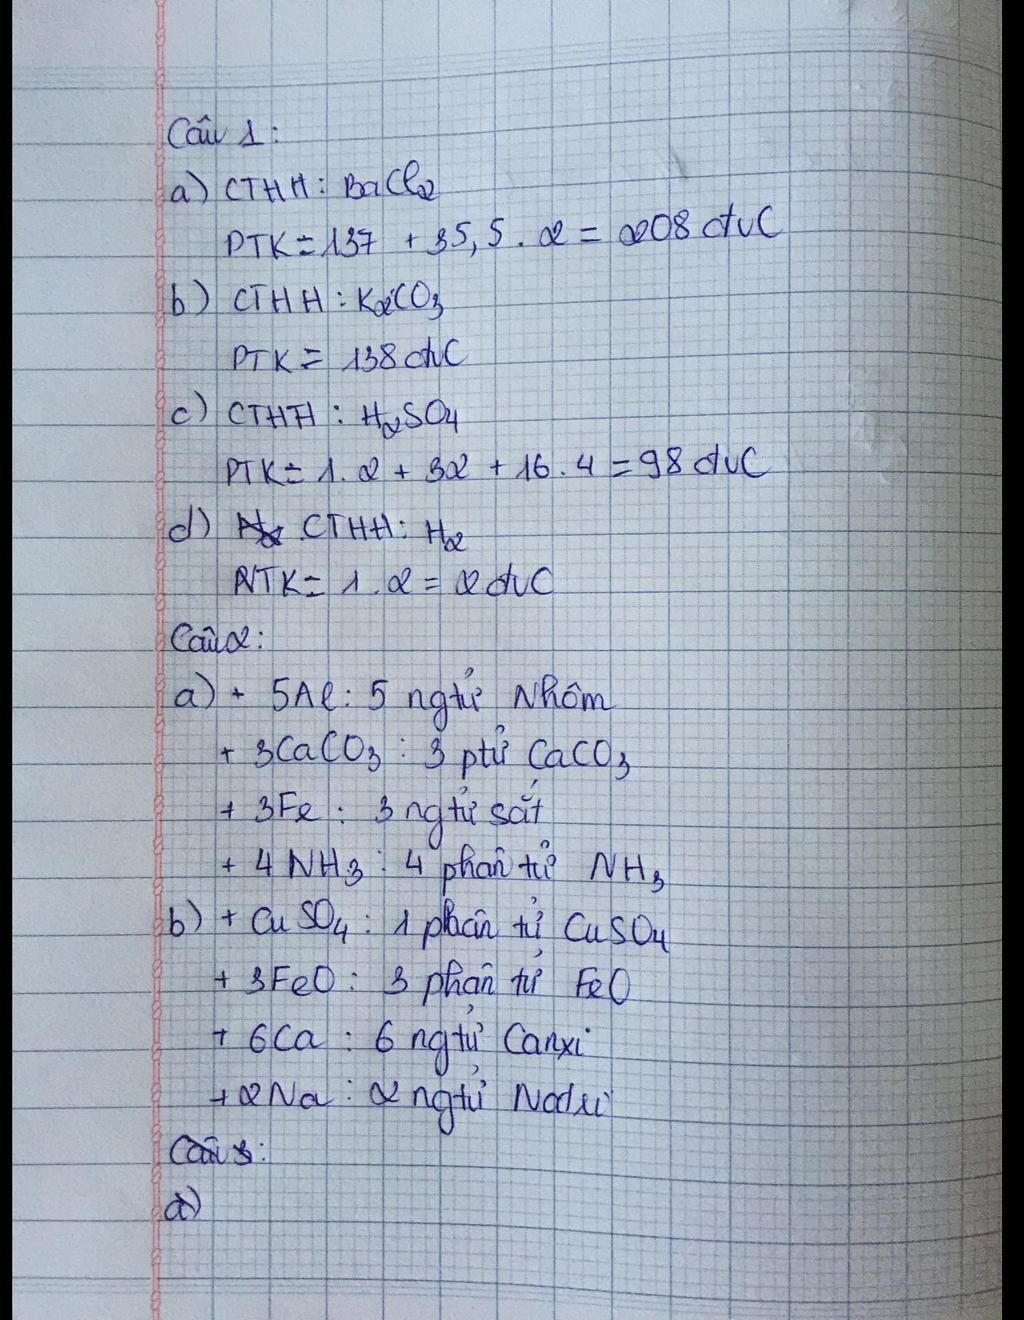 Câu 1:
a) CTHH: BaCl2
PTK = 137 + 35,5 . 2 = 208 đvC
b) CTHH: K2CO3
PTK = 138 đvC
c) CTHH: H2SO4
PTK = 1.2 + 32 + 16.4 = 98 đvC
d) CTHH: H2
NTK = 1.2 = 2 đvC
Câu 2:
a) + 5Al: 5 ngtử Nhôm
+ 3CaCO3 : 3 ptử CaCO3
+ 3Fe : 3 ngtử sắt
+ 4NH3 : 4 phân tử NH3
b) + CuSO4 : 1 phân tử CuSO4
+ 3FeO : 3 phân tử FeO
+ 6Ca : 6 ngtử Canxi
+ 2Na : 2 ngtử Natri
Câu 3:
a)